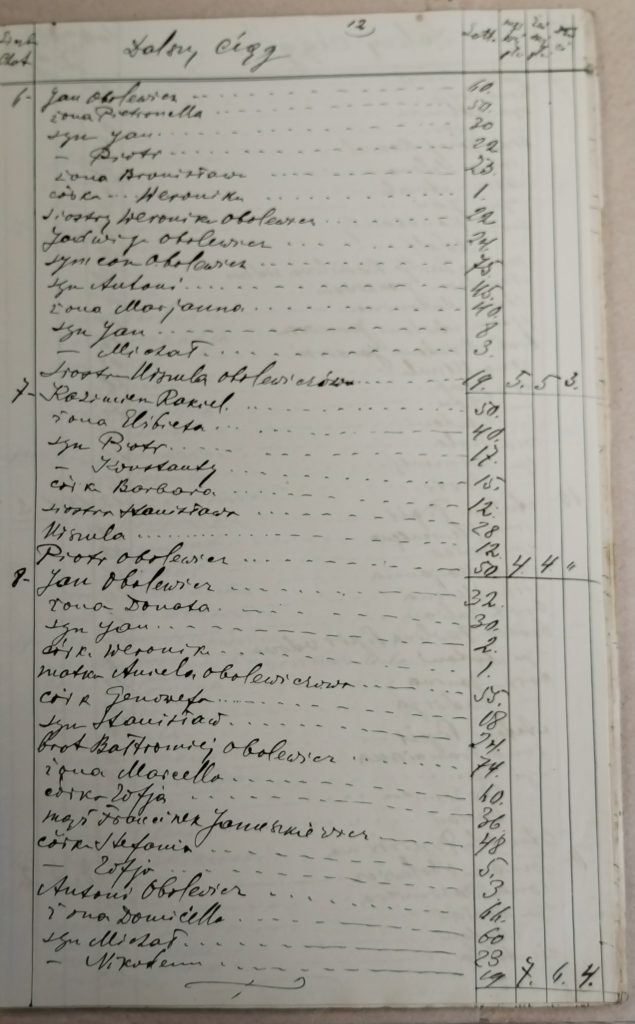 12
Dalszy Ciąg
6- Jan Obolewicz 60.
żona Pietronella 50.
syn Jan 20
— Piotr 22
żona Bronisława 23.
córka Weronika 1.
siostry Weronika Obolewicz 22
Jadwiga Obolewicz 24.
Symeon Obolewicz 75
syn Antoni 45.
żona Marjanna 40.
syn Jan 8
— Michał 3.
siostra Urszula Obolewiczówna 19. 5. 5 3.
7- Kazimierz Rakiel 50.
żona Elżbieta 40.
syn Piotr 17.
— Konstanty 15.
córka Barbara 12.
siostra Stanisława 28
Urszula 12.
Piotr Obolewicz 50 4. 4 "
8- Jan Obolewicz 32.
żona Donata 30.
syn Jan 2.
córk. Weronik. 1.
matka Aniela Obolewiczowa 55.
córka Genowefa 18
syn Stanisław 24.
brat Bałtromiej Obolewicz 74.
żona Marcella 60.
córka Zofja 36
mąż Franciszek Januszkiewicz 48
córka Stefania 5.
— Zofja 3
Antoni Obolewicz 66.
żona Domicella 60
syn Michał 23
— Nikodem 19 7. 6. 4.